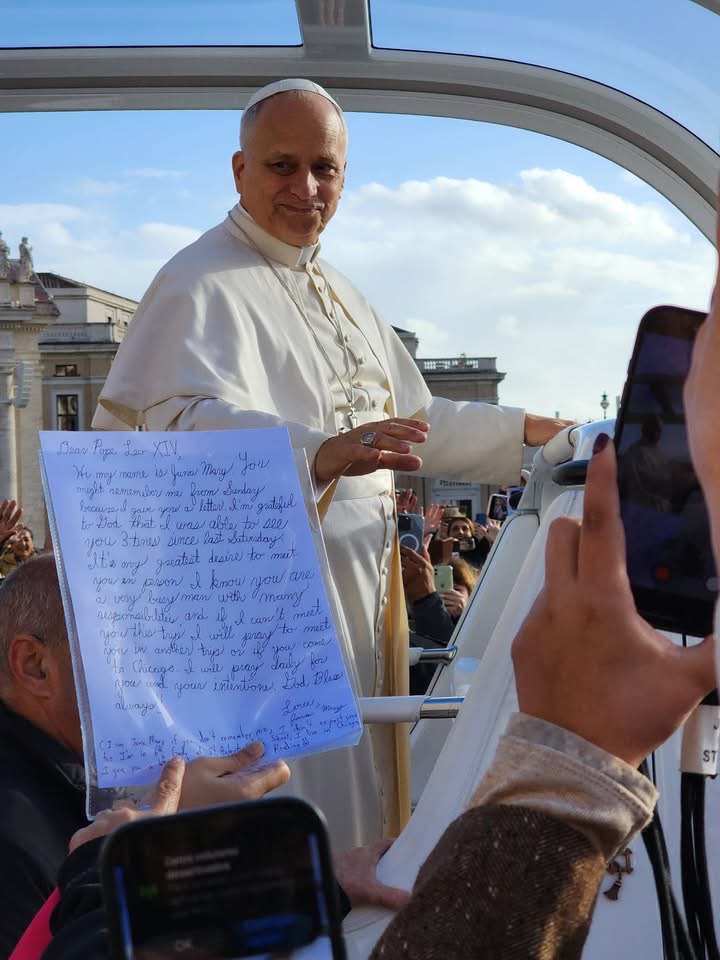 Dear Pope Leo XIV,
Hi my name is Jana Mary. You
might remember me from Sunday
because I gave you a letter. I'm grateful
to God that I was able to see
you 3 times since last Saturday.
It's my greatest desire to meet
you in person. I know you are
a very busy man with many
responsibilities, and if I can't meet
you this trip I will pray to meet
you in another trip or if you come
to Chicago. I will pray daily for
you and your intentions. God Bless
always.
Love,
(I am Jana Mary, if you don't remember me, I
I gave you a
OK
ST